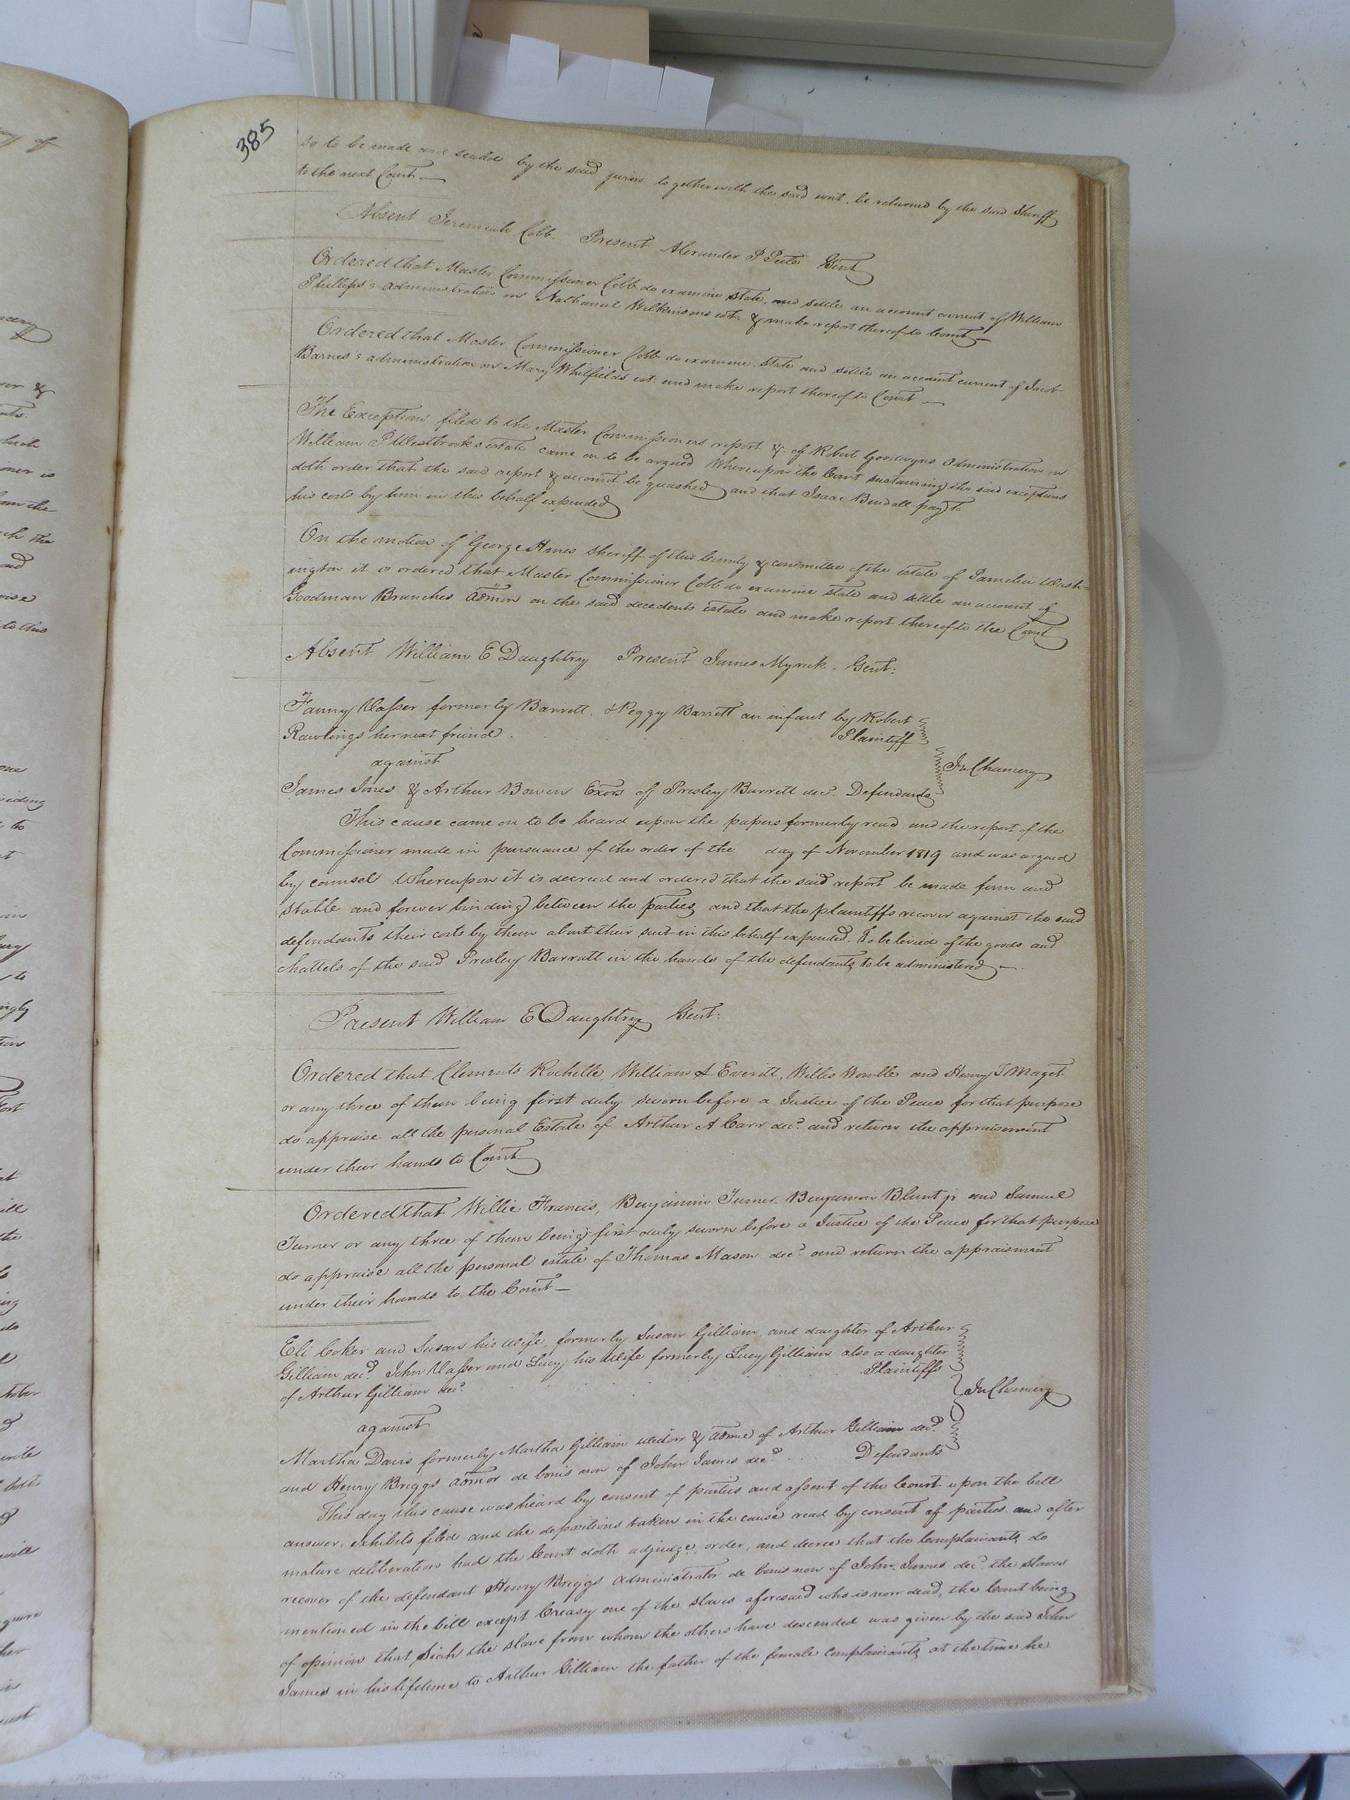 385
so to be made and sealed by the said jurors together with the said writ, be returned by the said Sheriff
to the next Court —
Absent Jeremiah Cobb Present Alexander P Peete Gent
Ordered that Master Commissioner Cobb do examine state, and settle an account current of William
Phillips's administration on Nathaniel Wilkinsons este & make report thereof to Court —
Ordered that Master Commissioner Cobb do examine state and settle an account current of Jacob
Barnes's administration on Mary Whitfields est. and make report thereof to Court —
The Exceptions filed to the Master Commissioners report &c of Robert Goodwyns administration on
William P Westbrooks estate came on to be argued Whereupon the Court sustaining the said exceptions
doth order that the said report & account be quashed and that Isaac Bendall pay
his costs by him in this behalf expended
On the motion of George Ames sheriff of this County & committee of the estate of Pamelia Wash=
ington it is ordered that Master Commissioner Cobb do examine state and settle an account of
Goodman Branches admon on the said decedents estate and make report thereof to the Court
Absent William E Daughtrey Present James Myrick. Gent:
Fanny Vasser formerly Barrett, & Peggy Barrett an infant by Robert
Rawlings her next friend Plaintiff
against In Chancery
James Jones & Arthur Bowen Exors of Presley Barrett dec. Defendants
This cause came on to be heard upon the papers formerly read and the report of the
Commissioner made in pursuance of the order of the day of November 1819 and was argued
by counsel Whereupon it is decreed and ordered that the said report be made firm and
stable and forever binding between the parties, and that the plaintiffs recover against the said
defendants their costs by them about their suit in this behalf expended. To be levied of the goods and
chattels of the said Presley Barrett in the hands of the defendants to be administered —
Present William E Daughtrey Gent:
Ordered that Clements Rochelle, William Everitt, Willis Womble and Henry Maget
or any three of them being first duly sworn before a Justice of the Peace for that purpose
do appraise all the personal Estate of Arthur A Carr dec.d and return the appraisment
under their hands to Court
Ordered that Willie Francis, Benjamin Turner, Benjamin Blunt jr and Samuel
Turner or any three of them being first duly sworn before a Justice of the Peace for that purpose
do appraise all the personal estate of Thomas Mason dec.d and return the appraisment
under their hands to the Court —
Eli Coker and Susan his wife, formerly Susan Gilliam, and daughter of Arthur
Gilliam dec.d John Vasser and Lucy his wife formerly Lucy Gilliam also a daughter
of Arthur Gilliam dec.d Plaintiffs
against In Chancery
Martha Davis formerly Martha Gilliam widow & admx of Arthur Gilliam dec.d
and Henry Briggs admor de bonis non of John James dec.d Defendants
This day this cause was heard by consent of parties and assent of the Court upon the bill
answer, exhibits filed and the depositions taken in the cause read by consent of parties and after
mature deliberation had the Court doth adjudge, order, and decree that the complainants do
recover of the defendant Henry Briggs administrator de bonis non of John James dec.d the slaves
mentioned in the bill except Creasy one of the slaves aforesaid who is now dead, the Court being
of opinion that the slave from whom the others have descended was given by the said John
James in his lifetime to Arthur Gilliam the father of the female complainants, at the time he